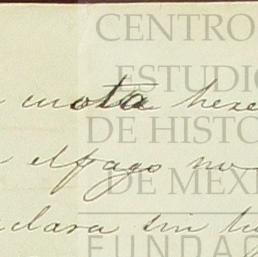 CENTRO
ESTUDIO
DE HISTO
DE MEXI
FUNDAC
cuota
el pago no
clara sin